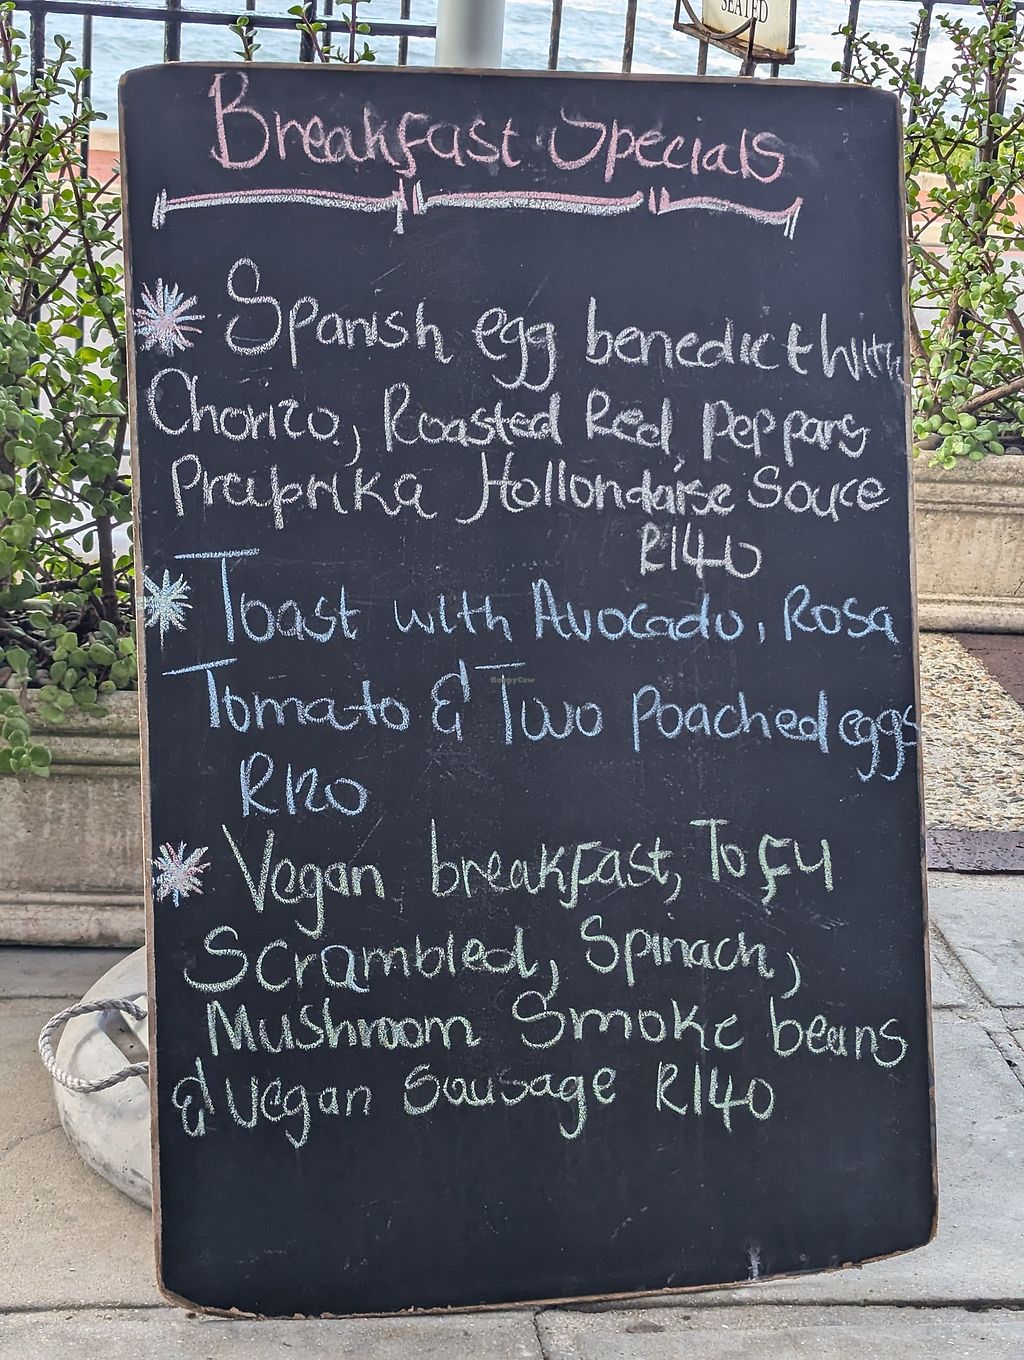 SEATED
Breakfast Specials
Spanish egg benedict with
Chorizo, Roasted Red peppars
Praprika Hollondaise Souce
R140
Toast with Avocado, Rosa
Tomato & Two poached eggs
R120
Vegan breakfast, Tofu
Scrambled, Spinach,
Mushroom Smoke beans
& vegan Sousage R140
HappyCow